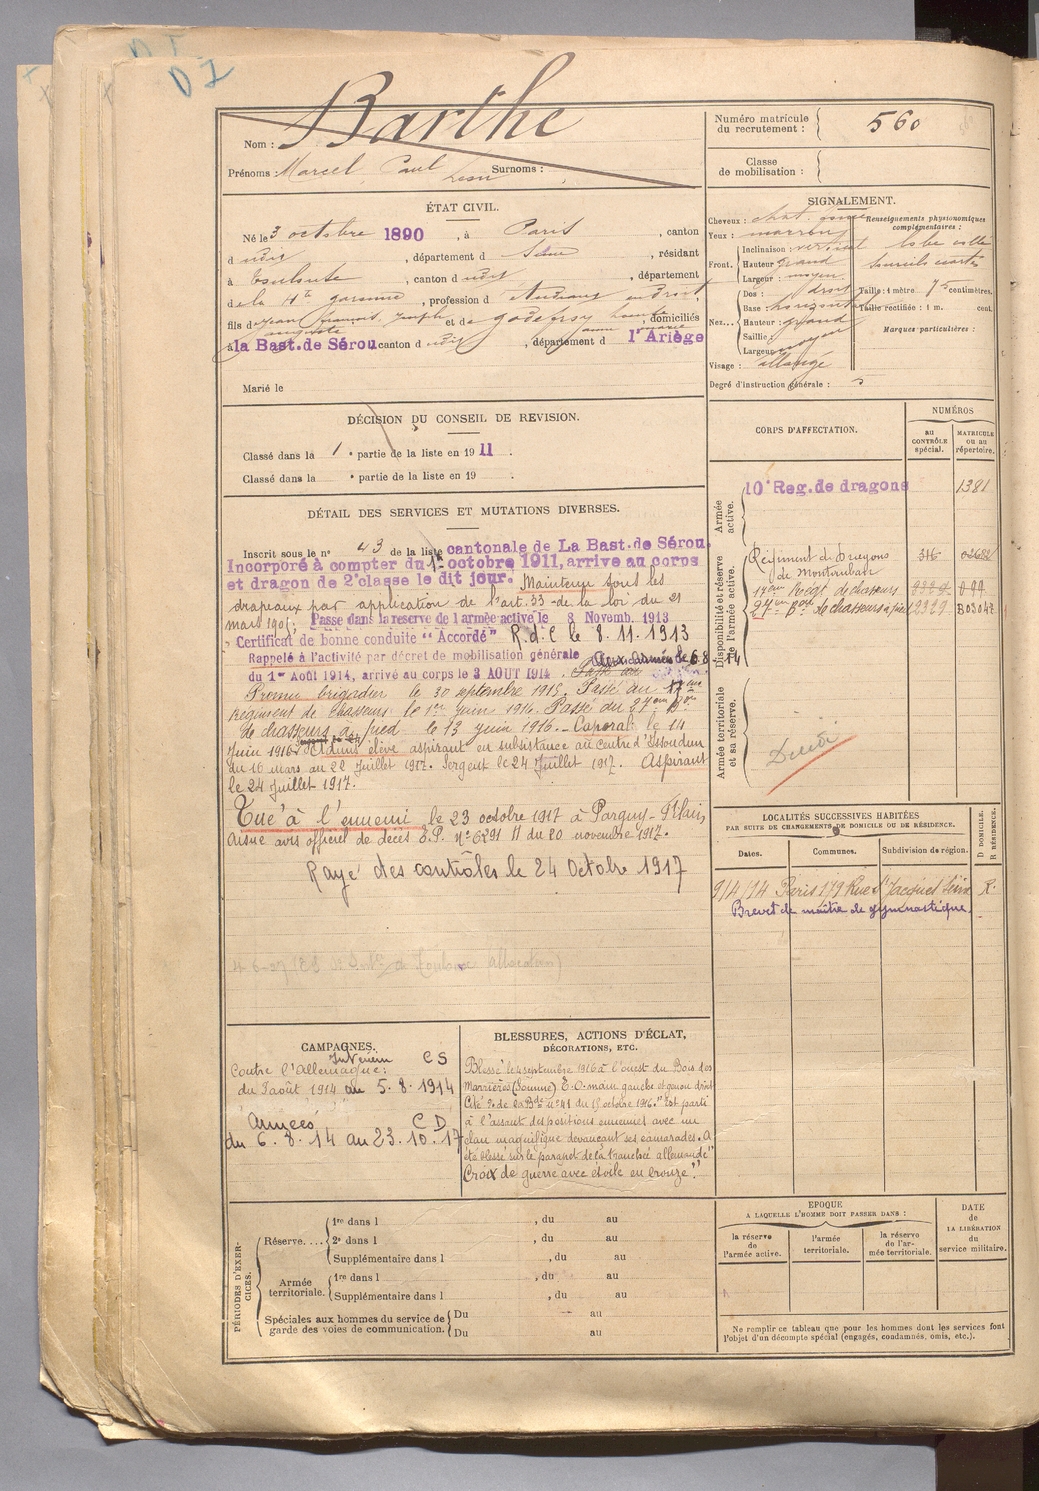 D I
Barthe
Nom :
Prénoms : Marcel Paul Léon Surnoms :
ÉTAT CIVIL.
Né le 3 octobre 1890, à Paris, canton
d udit, département d Seine, résidant
à Toulouse, canton d udit, département
de la Hte garonne, profession d Étudiant en droit
fils d Jean françois Joseph auguste et de godefroy anne marie, domiciliés
à la Bast. de Sérou canton d udit, département d l'Ariège
Marié le
DÉCISION DU CONSEIL DE REVISION.
Classé dans la 1e partie de la liste en 1911.
Classé dans la e partie de la liste en 19 .
DÉTAIL DES SERVICES ET MUTATIONS DIVERSES.
Inscrit sous le n° 43 de la liste cantonale de La Bast. de Sérou.
Incorporé à compter du 1er octobre 1911, arrive au corps
et dragon de 2e classe le dit jour. Maintenu sous les
drapeaux par application de l'art. 33 de la loi du 21
mars 1905. Passé dans la reserve de l'armée active le 8 Novemb. 1913
Certificat de bonne conduite "Accordé" R. d. C le 8.11.1913
Rappelé à l'activité par décret de mobilisation générale
du 1er Août 1914, arrivé au corps le 3 AOUT 1914. Aux armées le 6 8 14 Passé au
Promu brigadier le 30 septembre 1915. Passé au 17eme
Régiment de Chasseurs le 1er Juin 1916. Passé du 27eme Bon
de chasseurs à pied le 13 juin 1916. - Caporal le 14
Juin 1916. Admis élève aspirant en subsistance au Centre d'Issoudun
du 16 mars au 22 Juillet 1917. Sergent le 24 Juillet 1917. Aspirant
le 24 Juillet 1917.
Tué à l'ennemi le 23 octobre 1917 à Pargny-Filain,
Aisne avis officiel de décès E.P. n° 6291 11 du 20 novembre 1917.
Rayé des contrôles le 24 Octobre 1917
CAMPAGNES.
Intérieur C S
Contre l'Allemagne:
du 3 août 1914 au 5.8.1914
Armées C D
du 6.8.14 au 23.10.17
BLESSURES, ACTIONS D'ÉCLAT,
DÉCORATIONS, ETC.
Blessé le 4 septembre 1916 à l'ouest du Bois des
Marrières (Somme) E.O. main gauche et genou droit
Cité O. de la Bde n° 41 du 15 octobre 1916. "Est parti
à l'assaut des positions ennemies avec un
élan magnifique devançant ses camarades. A
été blessé sur le parapet de la tranchée allemande"
Croix de guerre avec étoile en bronze".
PÉRIODES D'EXERCICES.
Réserve....
1re dans l , du au
2e dans l , du au
Supplémentaire dans l , du au
Armée territoriale.
1re dans l , du au
Supplémentaire dans l , du au
Spéciales aux hommes du service de garde des voies de communication.
Du au
Du au
Numéro matricule du recrutement : 560
Classe de mobilisation :
SIGNALEMENT.
Cheveux : chat.
Yeux : marron
Front.
Inclinaison : vertical
Hauteur : grand
Largeur : moyen
Nez...
Dos : droit
Base : horizontal
Hauteur : grand
Saillie :
Largeur : moyen
Visage : allongé
Renseignements physionomiques complémentaires :
lobe collé
Sourcils écartés
Taille : 1 mètre 75 centimètres.
Taille rectifiée : 1 m. cent.
Marques particulières :
Degré d'instruction générale : 5
CORPS D'AFFECTATION.
NUMÉROS
AU CONTRÔLE spécial.
MATRICULE ou au répertoire.
Armée active.
10e Reg. de dragons 1381
Disponibilité et réserve de l'armée active.
Régiment de Dragons de Montauban 316 02682
17eme Régt de chasseurs 099
27eme Bon de chasseurs à pied B03047
Armée territoriale et sa réserve.
Décédé
LOCALITÉS SUCCESSIVES HABITÉES
PAR SUITE DE CHANGEMENTS DE DOMICILE OU DE RÉSIDENCE.
Dates. Communes. Subdivision de région. D DOMICILE. R RÉSIDENCE.
9/4/14 Paris 179 Rue St Jacques Seine R.
Brevet de maître de gymnastique.
EPOQUE
A LAQUELLE L'HOMME DOIT PASSER DANS :
la réserve de l'armée active.
l'armée territoriale.
la réserve de l'armée territoriale.
DATE de LA LIBÉRATION du service militaire.
Ne remplir ce tableau que pour les hommes dont les services font
l'objet d'un décompte spécial (engagés, condamnés, omis, etc.).